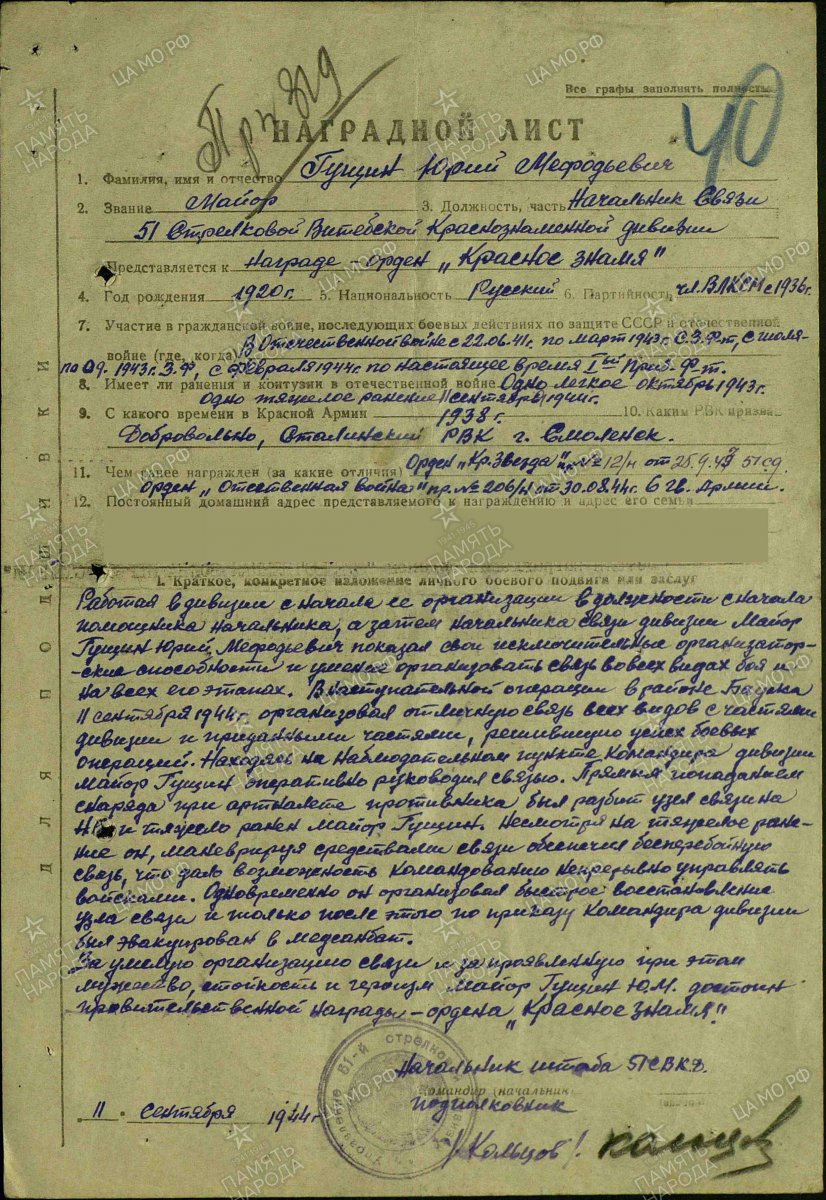 Все графы заполнять полностью
40
Пр. 819
НАГРАДНОЙ ЛИСТ
1. Фамилия, имя и отчество Гущин Юрий Мефодьевич
2. Звание Майор 3. Должность, часть Начальник Связи
51 Стрелковой Витебской Краснознаменной дивизии
Представляется к награде – орден „Красное знамя"
4. Год рождения 1920 г. 5. Национальность Русский 6. Партийность чл. ВЛКСМ с 1936 г.
7. Участие в гражданской войне, последующих боевых действиях по защите СССР и отечественной
войне (где, когда) В Отечественной войне с 22.06.41г. по март 1943г. С.З.Ф-т, с июля-
по 09. 1943г. З.Ф, с февраля 1944г. по настоящее время Iый Приб. Ф-т.
8. Имеет ли ранения и контузии в отечественной войне Одно легкое октябрь 1943г.
одно тяжелое ранение 11 сентябрь 1944г.
9. С какого времени в Красной Армии 1938 г. 10. Каким РВК призван
Добровольно, Сталинский РВК г. Смоленск.
11. Чем ранее награжден (за какие отличия) Орден „Кр. Звезда" пр. № 12/н от 25.9.43 51 сд.
Орден „Отечественная война" пр. № 206/н от 30.08.44г. 6 гв. Армии.
12. Постоянный домашний адрес представляемого к награждению и адрес его семьи
I. Краткое, конкретное изложение личного боевого подвига или заслуг
Работая в дивизии с начала ее организации в должности с начала
помощника начальника, а затем начальника связи дивизии Майор
Гущин Юрий Мефодьевич показал свои исключительные организатор-
-ские способности и умение организовать связь во всех видах боя и
на всех его этапах. В наступательной операции в районе Бауска
11 сентября 1944г. организовал отличную связь всех видов с частями
дивизии и приданными частями, решившую успех боевых
операций. Находясь на Наблюдательном пункте Командира дивизии
майор Гущин оперативно руководил связью. Прямым попаданием
снаряда при артналете противника был разбит узел связи на
НП и тяжело ранен майор Гущин. Несмотря на тяжелое ране-
ние он, маневрируя средствами связи обеспечил бесперебойную
связь, что дало возможность Командованию непрерывно управлять
войсками. Одновременно он организовал быстрое восстановление
узла связи и только после этого по приказу Командира дивизии
был эвакуирован в медсанбат.
За умелую организацию связи и за проявленную при этом
мужество, стойкость и героизм Майор Гущин Ю.М. достоин
правительственной награды – ордена „Красное знамя".
Начальник штаба 51 СВКД.
Командир (начальник)
подполковник
/Кольцов/. Кольцов
11 сентября 1944г.
Управление 51-й стрелковой
ДЛЯ ПОДШИВКИ
ПАМЯТЬ НАРОДА
ЦА МО РФ